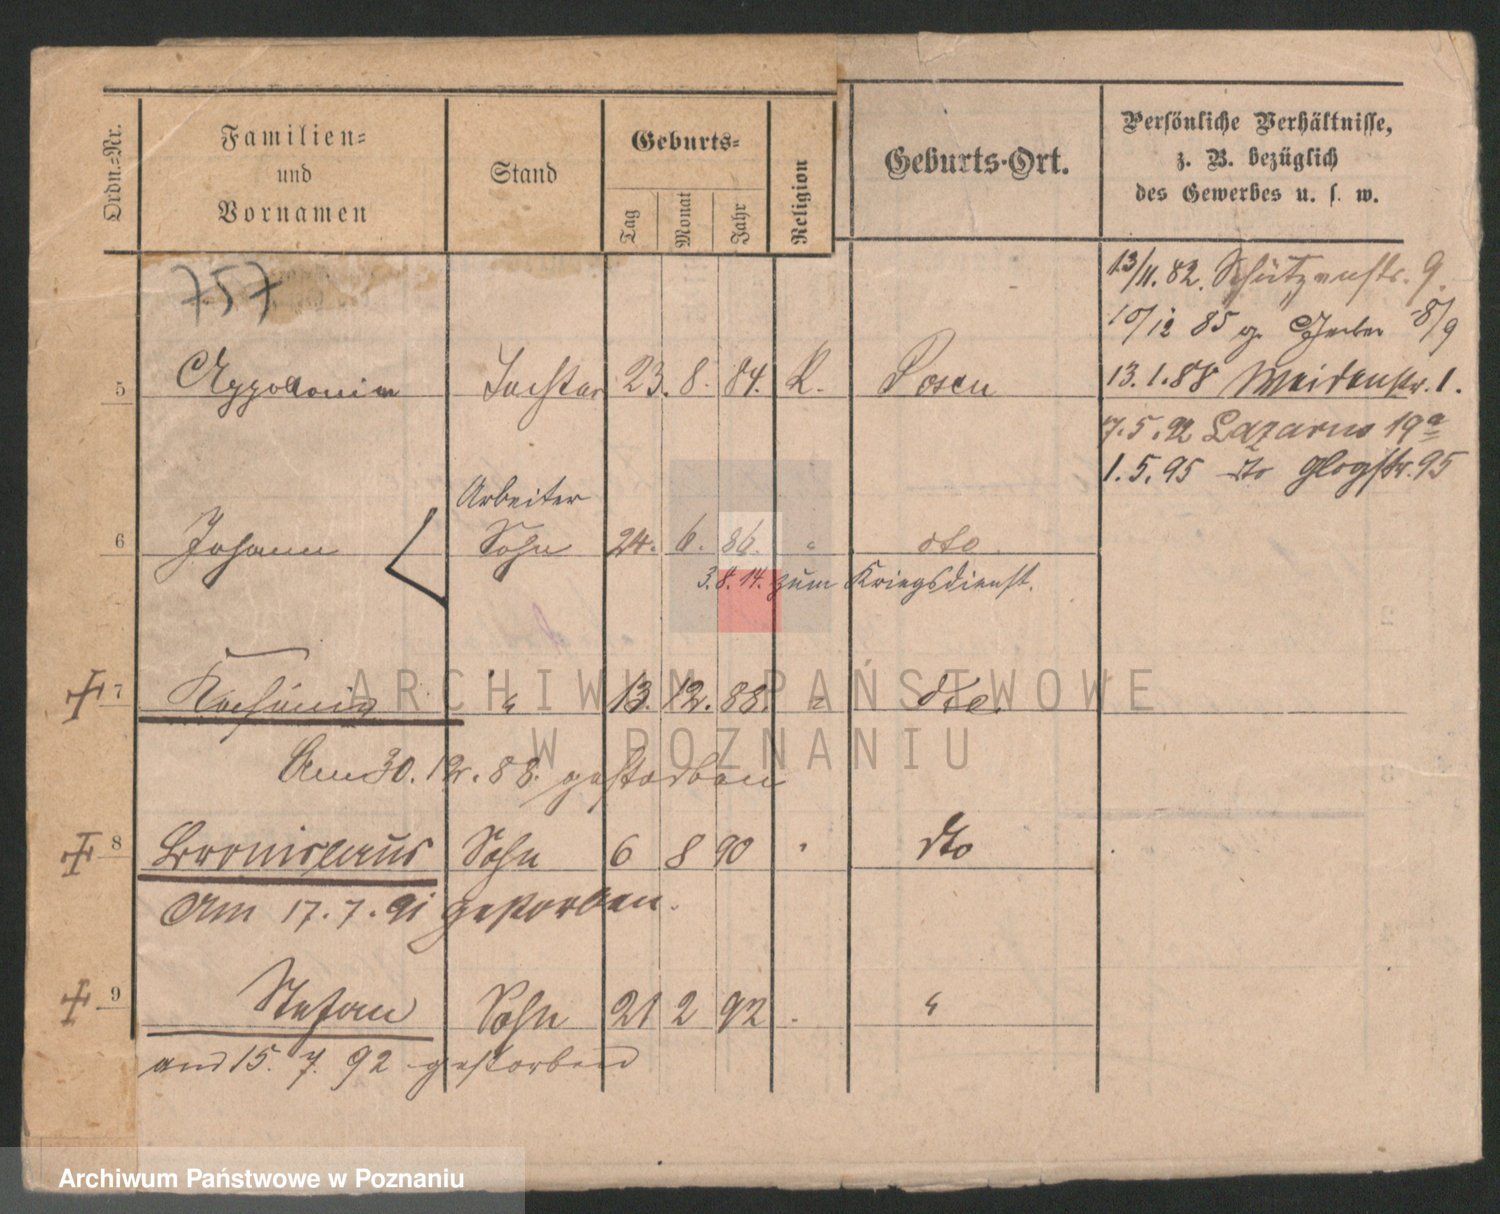 Ordn.-Nr.
Familien-
und
Vornamen
Stand
Geburts-
Tag
Monat
Jahr
Religion
Geburts-Ort.
Persönliche Verhältnisse,
z. B. bezüglich
des Gewerbes u. s. w.
757
13/11. 82. Schützenstr. 9.
10/12 85 Gerber 8/9
5 Appolonia Tochter 23. 8. 84. K. Posen
13. 1. 88 Weidenstr. 1.
7. 5. 92 Lazarus 19a
1. 5. 95 dto Glogstr. 95
Arbeiter
6 Johann Sohn 24. 6. 86. " dto
3. 8. 14. zum Kriegsdienst.
7 " 13. 12. 88. " dto.
Am 30. 12. 88. gestorben
8 Bronislaus Sohn 6 8 90 " dto
Am 17. 7. 91 gestorben.
9 Stefan Sohn 21 2 92 "
am 15. 7. 92 gestorben
ARCHIWUM PAŃSTWOWE
W POZNANIU
Archiwum Państwowe w Poznaniu